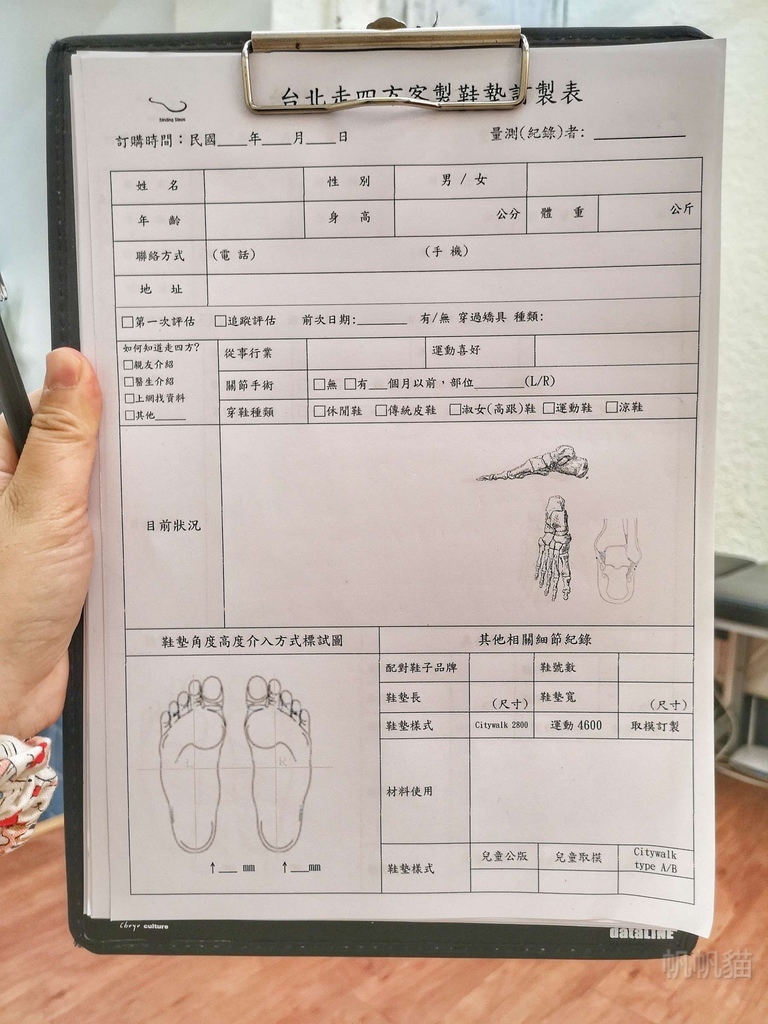 台北走四方客製鞋墊訂製表
訂購時間：民國____年____月____日
量測(紀錄)者：__________
姓 名 性 別 男 / 女
年 齡 身 高 公分 體 重 公斤
聯絡方式 (電 話) (手 機)
地 址
□第一次評估 □追蹤評估 前次日期:_______ 有/無 穿過矯具 種類:
如何知道走四方?
□親友介紹
□醫生介紹
□上網找資料
□其他____
從事行業 運動喜好
關節手術 □無 □有___個月以前，部位_______(L/R)
穿鞋種類 □休閒鞋 □傳統皮鞋 □淑女(高跟)鞋 □運動鞋 □涼鞋
目前狀況
鞋墊角度高度介入方式標試圖
L R
↑___ mm ↑___mm
其他相關細節紀錄
配對鞋子品牌 鞋號數
鞋墊長 (尺寸) 鞋墊寬 (尺寸)
鞋墊樣式 Citywalk 2800 運動 4600 取模訂製
材料使用
鞋墊樣式 兒童公版 兒童取模 Citywalk type A/B
culture
dataLINE
帆帆貓